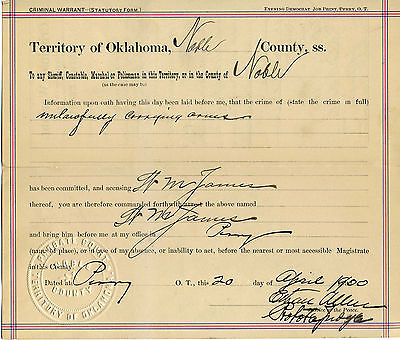 CRIMINAL WARRANT—(STATUTORY FORM.) EVENING DEMOCRAT JOB PRINT, PERRY, O. T.
Territory of Oklahoma, Noble County, ss.
To any Sheriff, Constable, Marshal or Policeman in this Territory, or in the County of Noble
(as the case may be)
Information upon oath having this day been laid before me, that the crime of (state the crime in full)
unlawfully carrying arms
has been committed, and accusing W M James
thereof, you are therefore commanded forthwith arrest the above named
W M James
and bring him before me at my office in Perry
(name of place), or in case of my absence, or inability to act, before the nearest or most accessible Magistrate
in this County.
Dated at Perry O. T., this 20 day of April 1900
of the Peace.
PROBATE COURT
NOBLE
COUNTY
TERRITORY OF OKLAHOMA